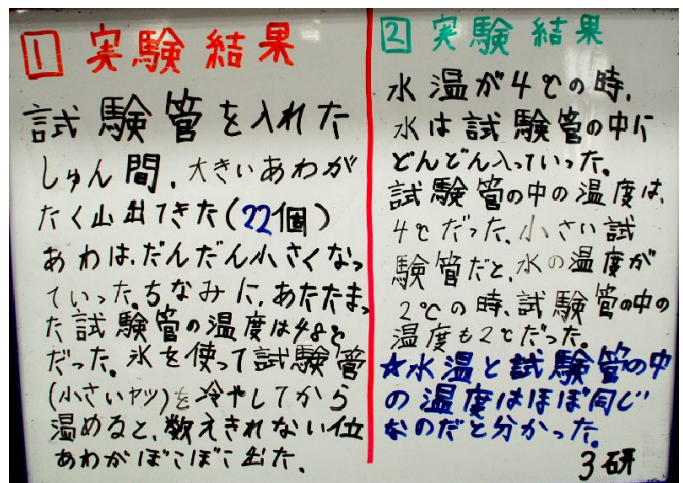 1 実験結果
試験管を入れた
しゅん間、大きいあわが
たく山出てきた(22個)
あわは、だんだん小さくなっ
ていった。ちなみに、あたたまっ
た試験管の温度は48℃
だった。氷を使って試験管
(小さいヤツ)を冷やしてから
温めると、数えきれない位
あわがぼこぼこ出た。
2 実験結果
水温が4℃の時、
水は試験管の中に
どんどん入っていった。
試験管の中の温度は、
4℃だった。小さい試
験管だと、水の温度が
2℃の時、試験管の中の
温度も2℃だった。
★水温と試験管の中
の温度はほぼ同じ
なのだと分かった。
3研